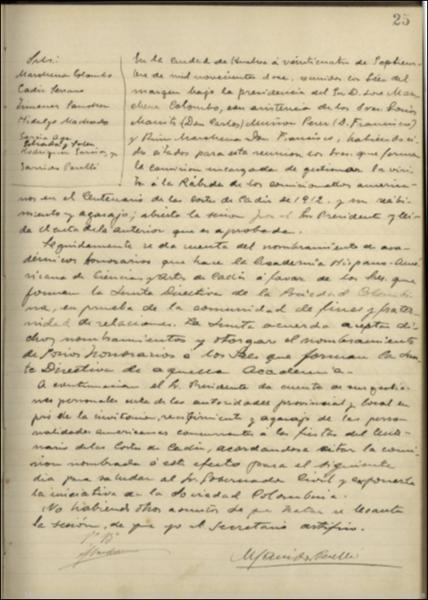 25
Sres:
Marchena Colombo
Cadiz Serrano
Jimenez
Hidalgo Machado
García
Rodriguez García, y
Garrido Perelló
En la ciudad de Huelva á veinticuatro de Septiem-
bre de mil novecientos doce, reunidos los Sres del
margen bajo la presidencia del Sr. D. Luis Mar-
chena Colombo, con asistencia de los Sres.
(Don Carlos) Muñoz Perez (D. Francisco)
y Marchena Don Francisco, habiendo si
do citados para esta reunion los Sres. que forman
la comision encargada de gestionar la visi
ta á la Rábida de los comisionados america
nos en el Centenario de las Cortes de Cadiz de 1912. y su recibi-
miento y agasajo; abierta la sesion por el Sr. Presidente y lei-
da el acta de la anterior que es aprobada.
Seguidamente se da cuenta del nombramiento de aca-
démicos honorarios que hace la Academia Hispano-Ame-
ricana de Ciencias y Artes de Cadiz á favor de los Sres. que
forman la Junta Directiva de la Sociedad Colombi-
na, en prueba de la comunidad de fines y frater
nidad de relaciones. La Junta acuerda aceptar di
chos nombramientos y otorgar el nombramiento
de Socios Honorarios á los Sres que forman la Jun-
ta Directiva de aquella Academia.
A continuacion el Sr. Presidente da cuenta de sus gestio
nes personales cerca de las autoridades provincial y local en
pró de la invitacion, recibimiento y agasajo de las perso
nalidades americanas concurrentes á las fiestas del Cente-
nario de las Cortes de Cadiz, acordandose citar la comi-
sion nombrada á este efecto para el siguiente
dia para saludar al Sr. Gobernador Civil y exponerle
la iniciativa de la Sociedad Colombina.
No habiendo otros asuntos de que tratar se levanta
la sesion, de que yo el Secretario certifico.
Vº Bº